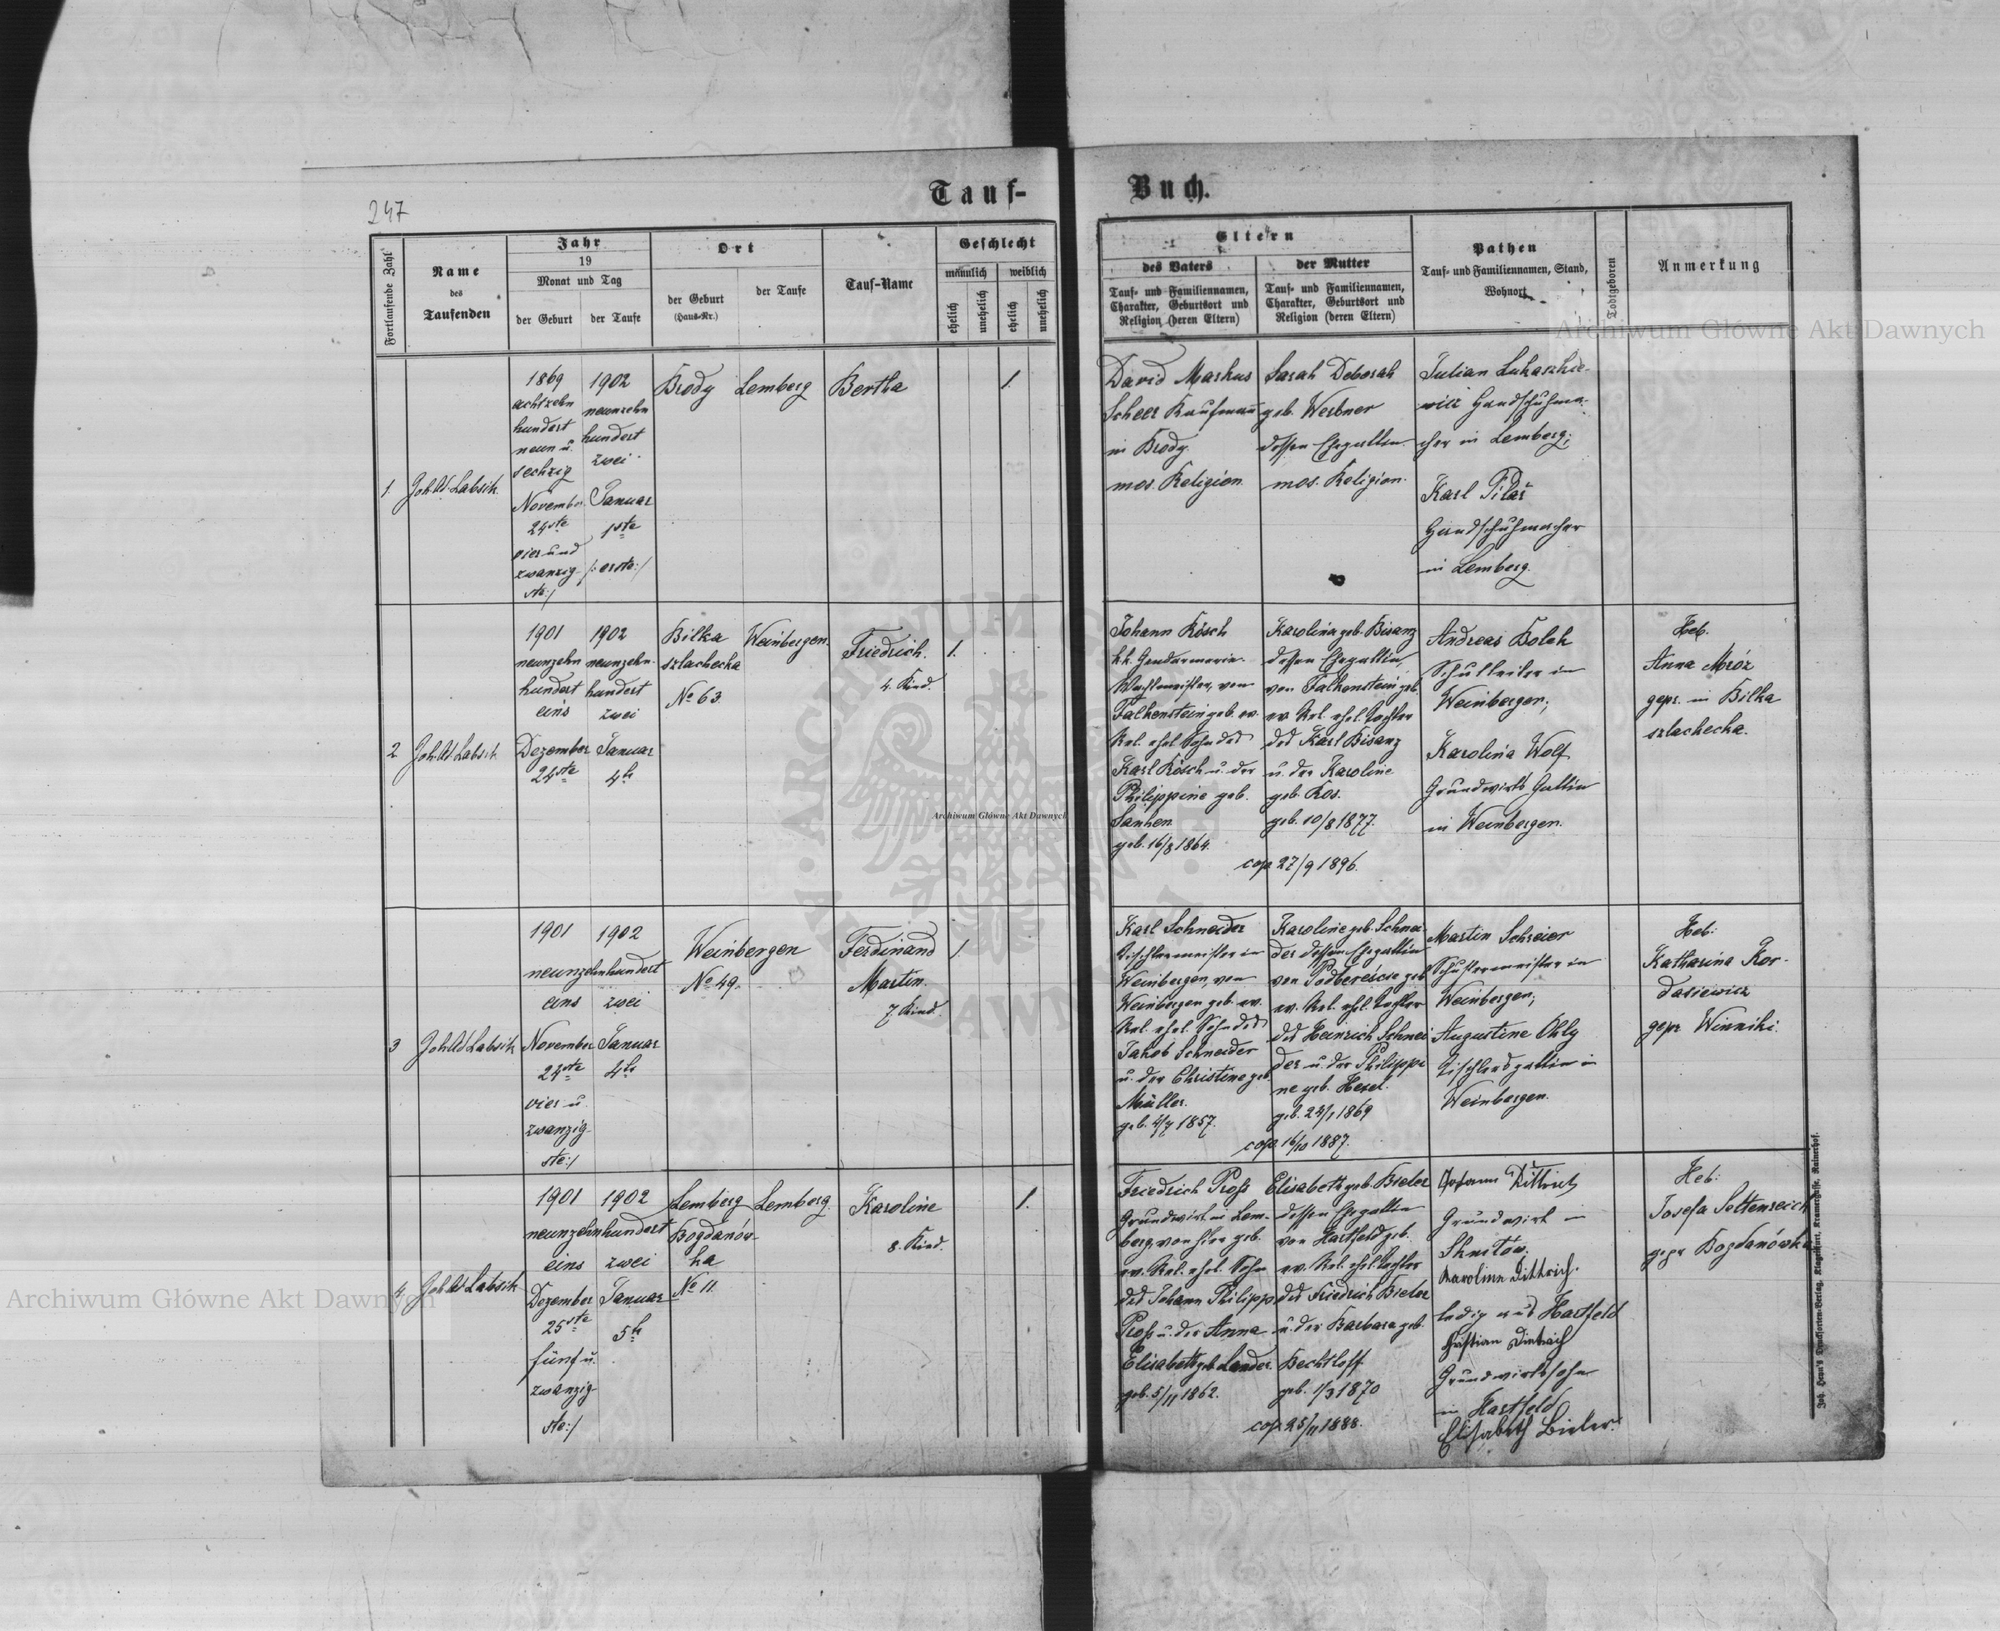 247
Tauf-
Buch.
Fortlaufende Zahl
Name
des
Taufenden
Jahr
19
Monat und Tag
der Geburt
der Taufe
Ort
der Geburt
(Haus-Nr.)
der Taufe
Tauf-Name
Geschlecht
männlich
weiblich
ehelich
unehelich
ehelich
unehelich
Eltern
des Vaters
Tauf- und Familiennamen,
Charakter, Geburtsort und
Religion (deren Eltern)
der Mutter
Tauf- und Familiennamen,
Charakter, Geburtsort und
Religion (deren Eltern)
Pathen
Tauf- und Familiennamen, Stand,
Wohnort
Todtgeboren
Anmerkung
1.
Joh. Ad. Labsik
1869
achtzehn
hundert
neun u.
sechzig
November
24ste
vier und
zwanzig-
ste:/
1902
neunzehn
hundert
zwei
Januar
1ste
/: erste :/
Brody
Lemberg
Bertha
1.
David Markus
Scheer Kaufmann
in Brody.
mos. Religion.
Sarah Deborah
geb. Werbner
dessen Ehegattin.
mos. Religion.
Julian Lukaszke-
wicz Handschuhma-
cher in Lemberg;
Karl Pilař
Handschuhmacher
in Lemberg.
2
Joh. Ad. Labsik
1901
neunzehn
hundert
eins
Dezember
24ste
1902
neunzehn-
hundert
zwei
Januar
4te
Bilka
szlachecka
No 63.
Weinbergen.
Friedrich.
4. Kind.
1.
Johann Kösch
k.k. Gendarmerie-
Wachtmeister, von
Falkenstein geb. ev.
Rel. ehel. Sohn des
Karl Kösch u. der
Philippine geb.
geb. 16/8 1864.
Karolina geb. Bisanz
dessen Ehegattin,
von Falkenstein geb.
ev. Rel. ehel. Tochter
des Karl Bisanz
u. der Karoline
geb. Kos.
geb. 10/8 1877.
cop. 27/9 1896.
Andreas Bolek
Schulleiter in
Weinbergen;
Karolina Wolf
Grundwirts Gattin
in Weinbergen.
Heb.
Anna Mróz
gepr. in Bilka
szlachecka.
3
Joh. Ad. Labsik
1901
1902
neunzehnhundert
eins
zwei
November
24ste
vier u.
zwanzig-
ste:/
Januar
4te
Weinbergen
No 49.
Ferdinand
Martin.
7. Kind.
1.
Karl Schneider
Tischlermeister in
Weinbergen, von
Weinbergen geb. ev.
Rel. ehel. Sohn des
Jakob Schneider
u. der Christine geb.
Müller.
1857.
Karoline geb. Schnei-
der dessen Ehegattin
von Podberezce geb.
ev. Rel. ehel. Tochter
des Heinrich Schnei
der u. der Philippi
ne geb. Hexel.
1869
cop. 16/10 1887.
Martin Schreier
Schustermeister in
Weinbergen;
Augustine Ohly
Tischlersgattin in
Weinbergen.
Heb:
Katharina Kor-
dasiewicz
gepr. Winniki.
4
Joh. Ad. Labsik
1901
1902
neunzehnhundert
eins
zwei
Dezember
25ste
fünf u.
zwanzig-
ste:/
Januar
5te
Lemberg
Bogdanów-
ka
No 11.
Lemberg.
Karoline
8. Kind.
1.
Friedrich Profs
Grundwirt in Lem-
berg von hier geb.
ev. Rel. ehel. Sohn
des Johann Philipp
Profs u. der Anna
Elisabeth geb. Lander.
geb. 5/11 1862.
Elisabeth geb. Bieler
dessen Ehegattin
von Hartfeld geb.
ev. Rel. ehel. Tochter
des Friedrich Bieler
u. der Barbara geb.
Bechtloff
geb. 1/3 1870
cop. 25/11 1888.
Johann Dittrich
Grundwirt in
Sknilów.
Karolina Dittrich.
ledig aus Hartfeld
Christian Dietrich
Grundwirtssohn
in Hartfeld
Elisabeth Bieler.
Heb:
Josefa Seltenreich
gepr Bogdanówka
Joh. Leon's Drucksorten-Verlag, Klagenfurt, Kramergasse, Rainerhof.
Archiwum Główne Akt Dawnych
Archiwum Główne Akt Dawnych
Archiwum Główne Akt Dawnych